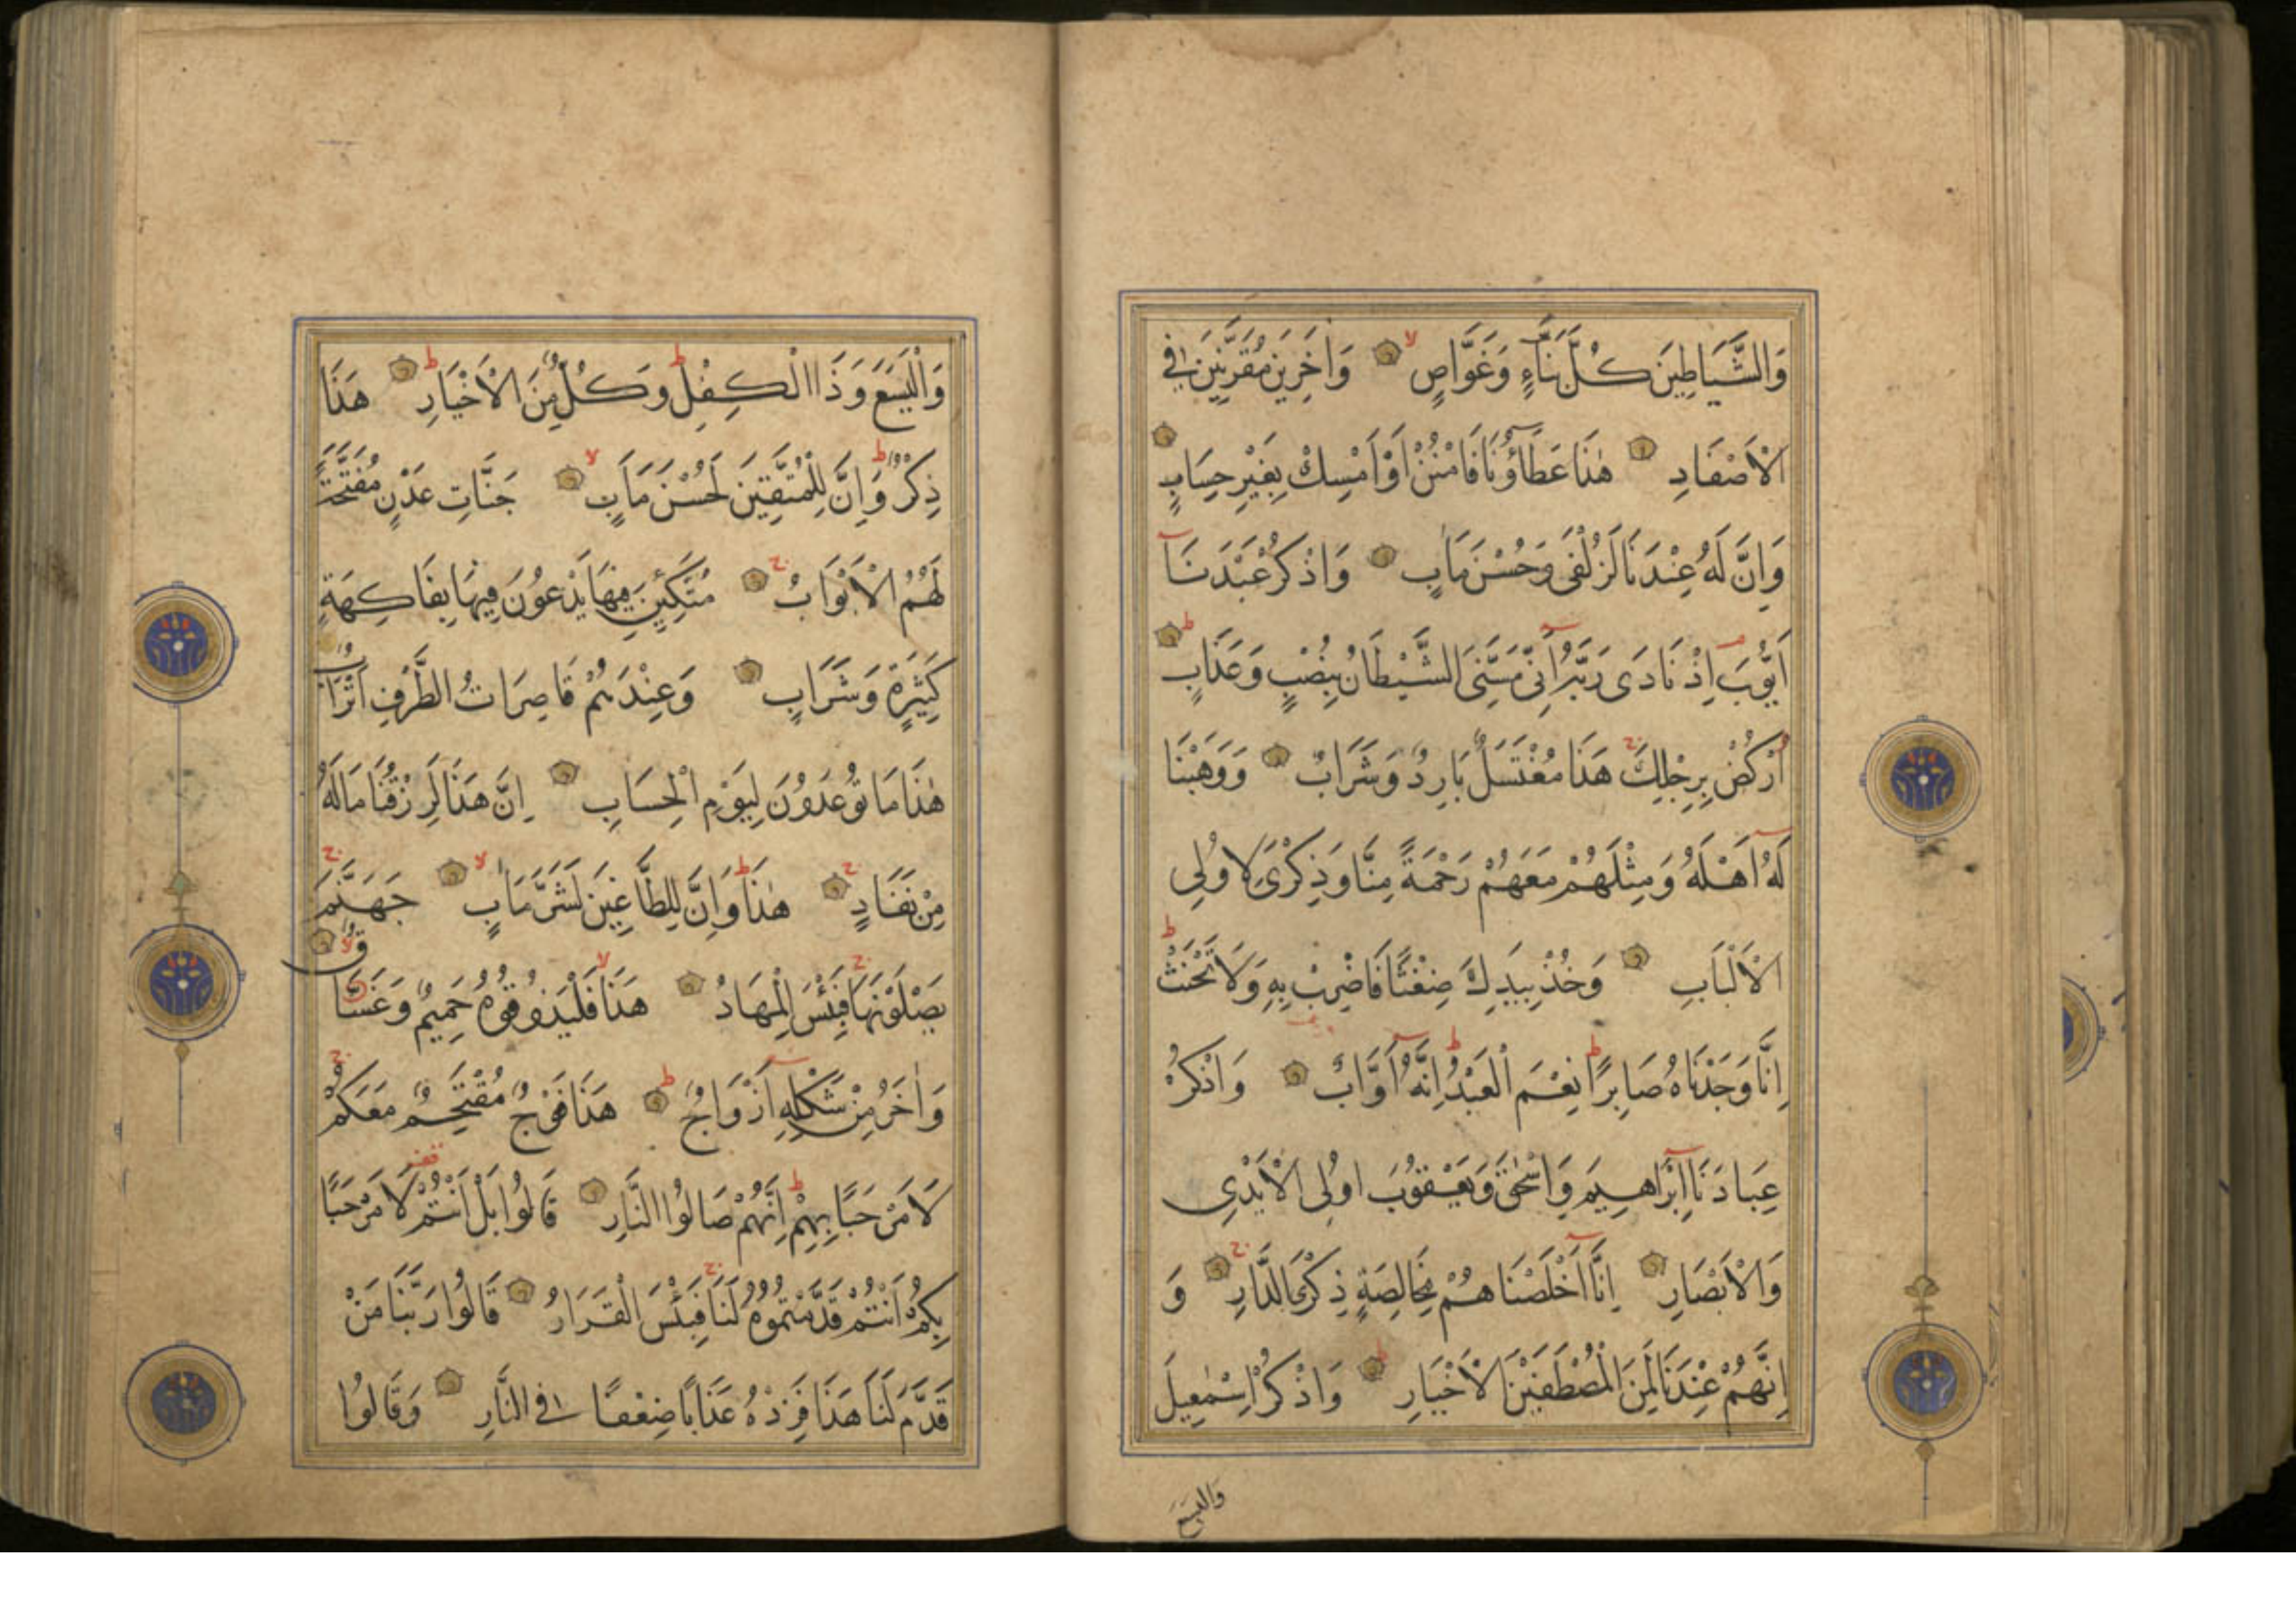 وَالشَّيَاطِينَ كُلَّ بَنَّاءٍ وَغَوَّاصٍ وَاٰخَرِينَ مُقَرَّنِينَ فِي
الْاَصْفَادِ هٰذَا عَطَاؤُنَا فَامْنُنْ اَوْ اَمْسِكْ بِغَيْرِ حِسَابٍ
وَاِنَّ لَهُ عِنْدَنَا لَزُلْفَى وَحُسْنَ مَاٰبٍ وَاذْكُرْ عَبْدَنَا
اَيُّوبَ اِذْ نَادَى رَبَّهُ اَنِّي مَسَّنِيَ الشَّيْطَانُ بِنُصْبٍ وَعَذَابٍ
اُرْكُضْ بِرِجْلِكَ هَذَا مُغْتَسَلٌ بَارِدٌ وَشَرَابٌ وَوَهَبْنَا
لَهُ اَهْلَهُ وَمِثْلَهُمْ مَعَهُمْ رَحْمَةً مِنَّا وَذِكْرَى لِاُولِي
الْاَلْبَابِ وَخُذْ بِيَدِكَ ضِغْثًا فَاضْرِبْ بِهِ وَلَا تَحْنَثْ
اِنَّا وَجَدْنَاهُ صَابِرًا نِعْمَ الْعَبْدُ اِنَّهُ اَوَّابٌ وَاذْكُرْ
عِبَادَنَا اِبْرَاهِيمَ وَاِسْحٰقَ وَيَعْقُوبَ اُولِي الْاَيْدِي
وَالْاَبْصَارِ اِنَّا اَخْلَصْنَاهُمْ بِخَالِصَةٍ ذِكْرَى الدَّارِ وَ
اِنَّهُمْ عِنْدَنَا لَمِنَ الْمُصْطَفَيْنَ الْاَخْيَارِ وَاذْكُرْ اِسْمٰعِيلَ
وَالْيَسَعَ
وَالْيَسَعَ وَذَا الْكِفْلِ وَكُلٌّ مِنَ الْاَخْيَارِ هَذَا
ذِكْرٌ وَاِنَّ لِلْمُتَّقِينَ لَحُسْنَ مَاٰبٍ جَنَّاتِ عَدْنٍ مُفَتَّحَةً
لَهُمُ الْاَبْوَابُ مُتَّكِئِينَ فِيهَا يَدْعُونَ فِيهَا بِفَاكِهَةٍ
كَثِيرَةٍ وَشَرَابٍ وَعِنْدَهُمْ قَاصِرَاتُ الطَّرْفِ اَتْرَابٌ
هٰذَا مَا تُوعَدُونَ لِيَوْمِ الْحِسَابِ اِنَّ هَذَا لَرِزْقُنَا مَا لَهُ
مِنْ نَفَادٍ هٰذَا وَاِنَّ لِلطَّاغِينَ لَشَرَّ مَاٰبٍ جَهَنَّمَ
يَصْلَوْنَهَا فَبِئْسَ الْمِهَادُ هَذَا فَلْيَذُوقُوهُ حَمِيمٌ وَغَسَّاقٌ
وَاٰخَرُ مِنْ شَكْلِهِ اَزْوَاجٌ هَذَا فَوْجٌ مُقْتَحِمٌ مَعَكُمْ
لَا مَرْحَبًا بِهِمْ اِنَّهُمْ صَالُوا النَّارِ قَالُوا بَلْ اَنْتُمْ لَا مَرْحَبًا
بِكُمْ اَنْتُمْ قَدَّمْتُمُوهُ لَنَا فَبِئْسَ الْقَرَارُ قَالُوا رَبَّنَا مَنْ
قَدَّمَ لَنَا هَذَا فَزِدْهُ عَذَابًا ضِعْفًا فِي النَّارِ وَقَالُوا